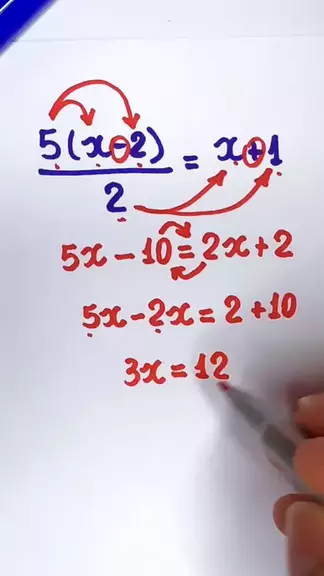 5(x-2)/2 = x+1
5x-10=2x+2
5x-2x=2+10
3x=12